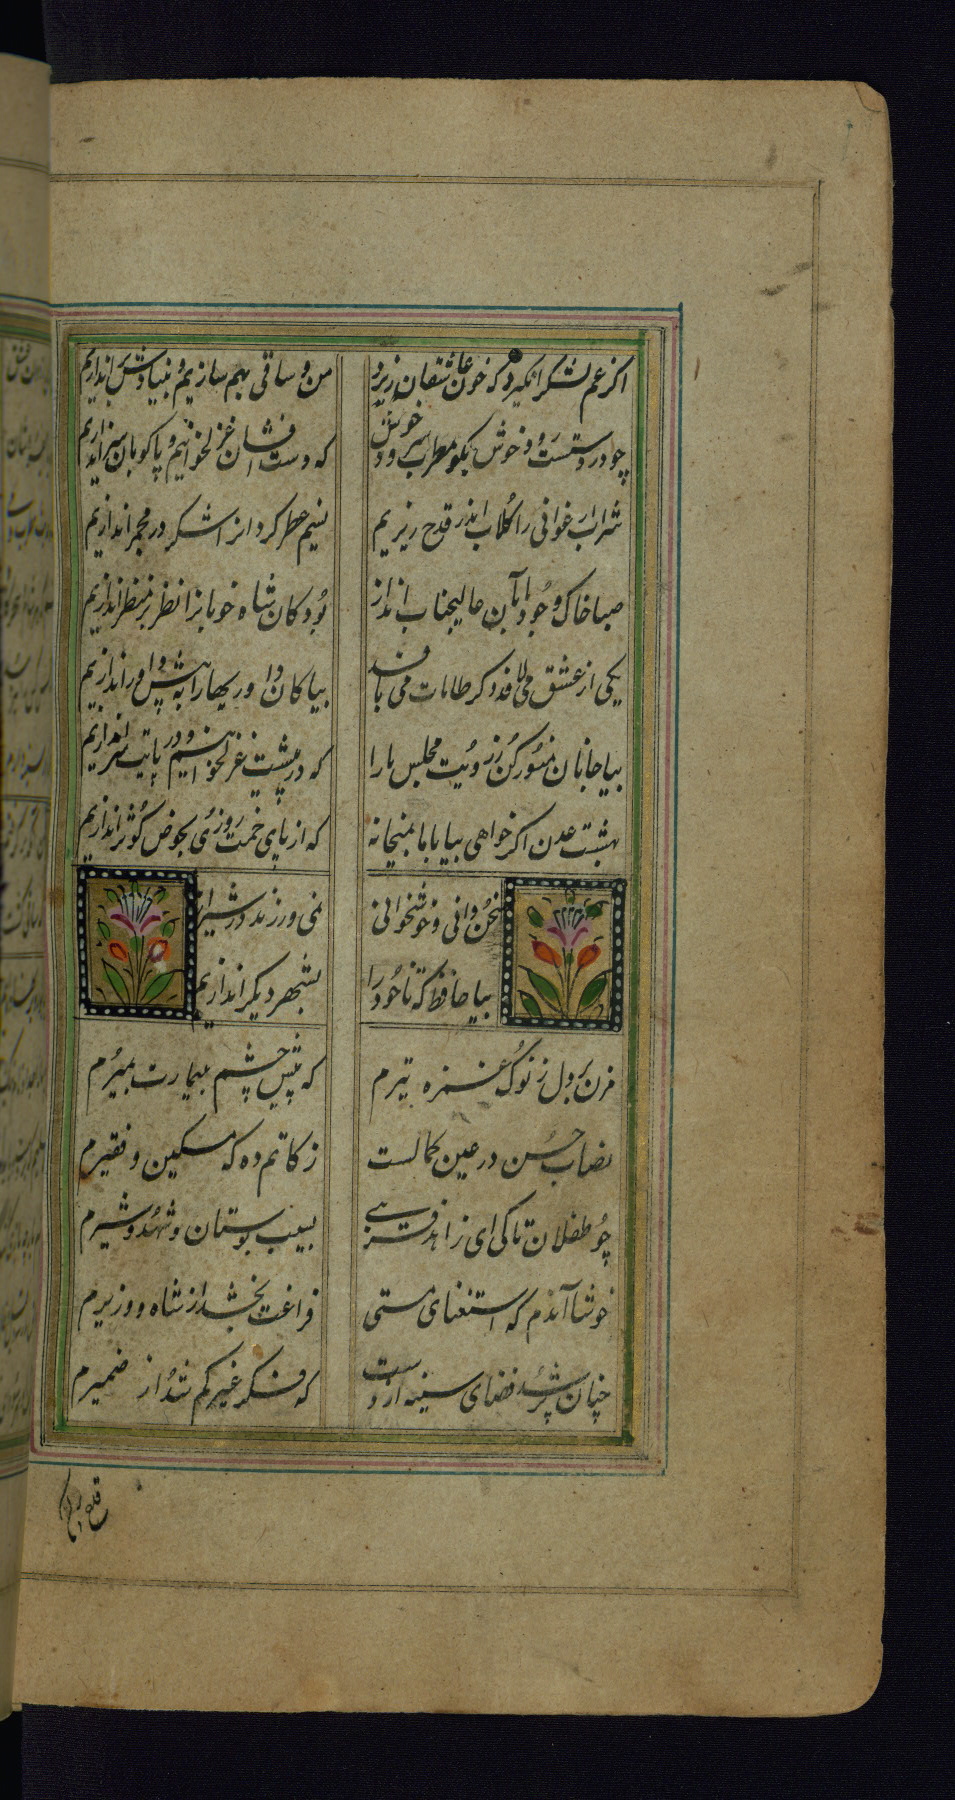 اکر غم لشکر انکیزد که خون عاشقان ریزد
من و ساقی بهم سازیم و بنیادش براندازیم
چو در دستست رودی خوش بکو مطرب سرودی خوش
که دست افشان غزل خوانیم و پاکوبان سر اندازیم
شراب ارغوانی را کلاب اندر قدح ریزیم
نسیم عطر کردانرا شکر در مجمر اندازیم
صبا خاک وجود ما بآن عالیجناب انداز
بود کان شاه خوبانرا نظر بر منظر اندازیم
یکی از عشق می لافد دکر طامات می بافد
بیا کان داوریها را به پیش داور اندازیم
بیا جانان منور کن ز رویت مجلس ما را
که در پیشت غزل خوانیم و در پایت سر اندازیم
بهشت عدن اکر خواهی بیا با ما بمیخانه
که از پای خمت روزی بحوض کوثر اندازیم
سخن دانی و خوشخوانی
نمی ورزند در شیراز
بیا حافظ که تا خود را
بشهر دیکر اندازیم
مزن بر دل ز نوک غمزه تیرم
که پیش چشم بیمارت بمیرم
نصاب حسن در عین کمالست
زکاتم ده که مسکین و فقیرم
چو طفلان تا کی ای زاهد فریبی
بسیب بوستان و شهد و شیرم
خوشا آندم که استغنای مستی
فراغت بخشد از شاه و وزیرم
چنان پر شد فضای سینه از دوست
که فکر غیر کم شد از ضمیرم
قدح پر کن